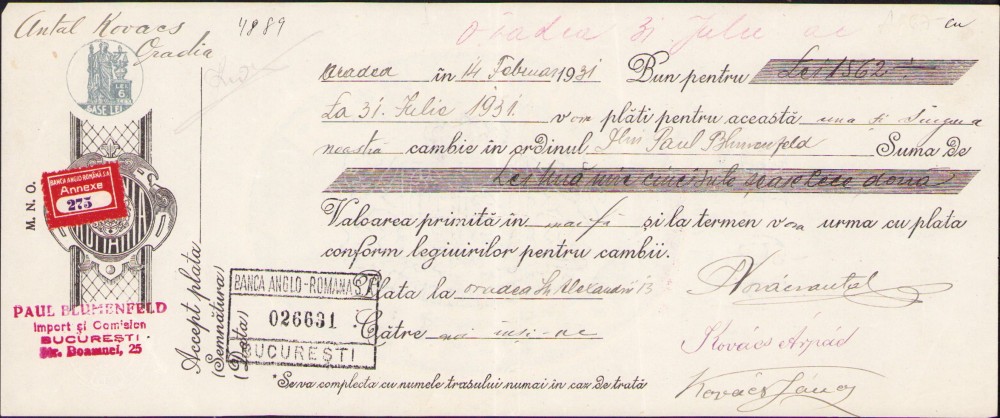 Antal Kovacs
Oradia
4889
Oradea 31 Julie ac
cu
LEI 6
ȘASE LEI
Oradea în 14 Februar 1931 Bun pentru Lei 1562
La 31 Iulie 1931 vom plăti pentru această una și singura
noastră cambie în ordinul Dlui Paul Blumenfeld Suma de
Lei Una mie cinci sute șase zece doua
Valoarea primită în marfă și la termen vom urma cu plata
conform legiuirilor pentru cambii.
Plata la Oradea Str Alexandri 13
Către noi inși-ne
Kovács Antal
Kovács Árpád
Kovács János
*Se va complecta cu numele trasului numai în caz de trată
M. N. O.
BANCA ANGLO-ROMÂNĂ S.A.
Annexe
275
PAUL BLUMENFELD
Import și Comision
BUCUREȘTI
Str. Doamnei, 25
Accept plata
(Semnătura)
(Data)
BANCA ANGLO-ROMÂNĂ S.A.
026631
BUCUREȘTI